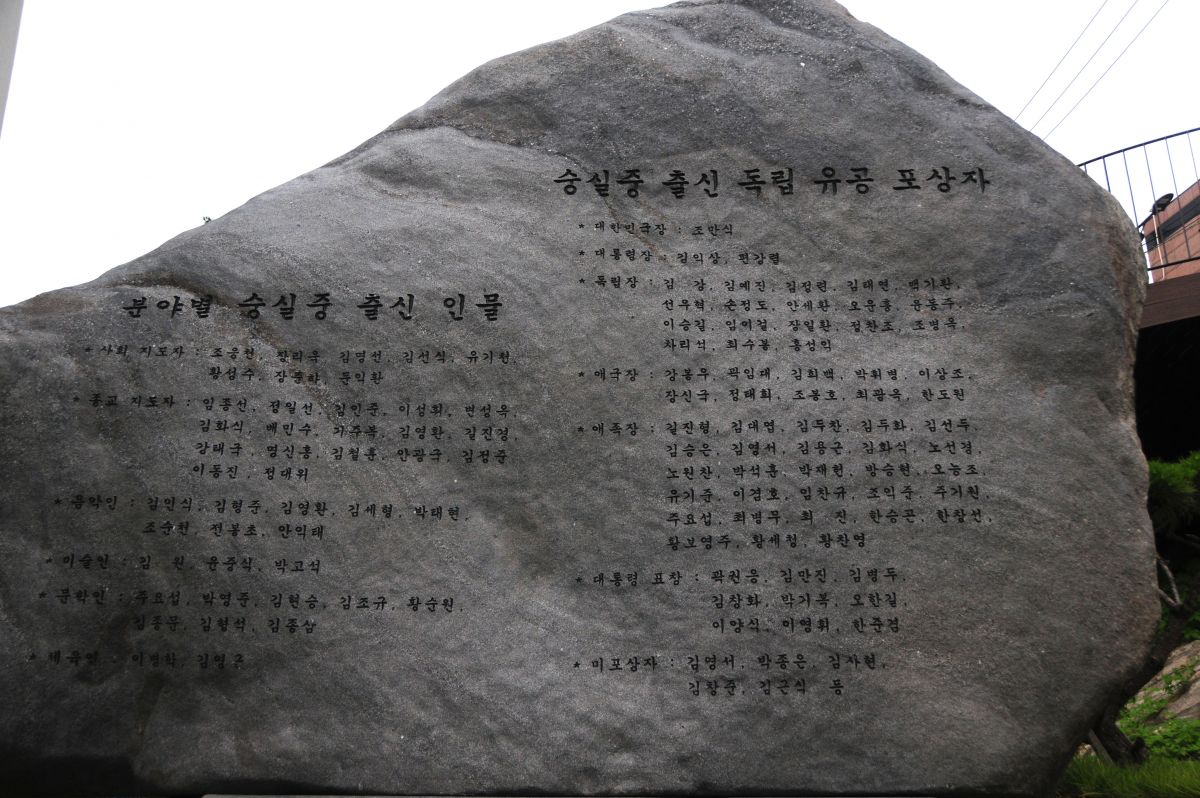 분야별 숭실중 출신 인물
* 사회 지도자 : 조응천, 황리옥, 김명선, 김선식, 유기천,
황성수, 장준하, 문익환
* 종교 지도자 : 임종선, 정일선, 김인준, 이성휘, 변성옥,
김화식, 배민수, 기주복, 김영환, 길진경,
강태국, 명신홍, 김철훈, 안광국, 김정준
이동진, 정대위
* 음악인 : 김인식, 김형준, 김영환, 김세형, 박태현,
조순천, 전봉초, 안익태
* 미술인 : 김 원, 윤중식, 박고석
* 문학인 : 주요섭, 박영준, 김현승, 김조규, 황순원,
김종문, 김형석, 김종삼
* 체육인 : 이병학, 김영근
숭실중 출신 독립 유공 포상자
* 대한민국장 : 조만식
* 대통령장 : 김익상, 편강렬
* 독립장 : 김 강, 김예진, 김정련, 김태연, 백기환,
선우혁, 손정도, 안세환, 오운흥, 윤동주,
이승길, 임이걸, 장일환, 정찬조, 조병옥,
차리석, 최수봉, 홍성익
* 애국장 : 강봉우, 곽임대, 김희백, 박휘병, 이상조,
장신국, 정태희, 조봉호, 최광옥, 한도원
* 애족장 : 길진형, 김대영, 김두찬, 김두화, 김선두,
김승은, 김영서, 김용근, 김화식, 노선경,
노원찬, 박석훈, 박재헌, 방승현, 오능조,
유기준, 이겸호, 임찬규, 조익준, 주기원,
주요섭, 최병무, 최 진, 한승곤, 한창선,
황보영주, 황세청, 황찬영
* 대통령 표창 : 곽권응, 김만진, 김병두,
김창화, 박기복, 오한길,
이양식, 이영휘, 한준겸
* 미포상자 : 김영서, 박종은, 김사현,
김창준, 김근식 등